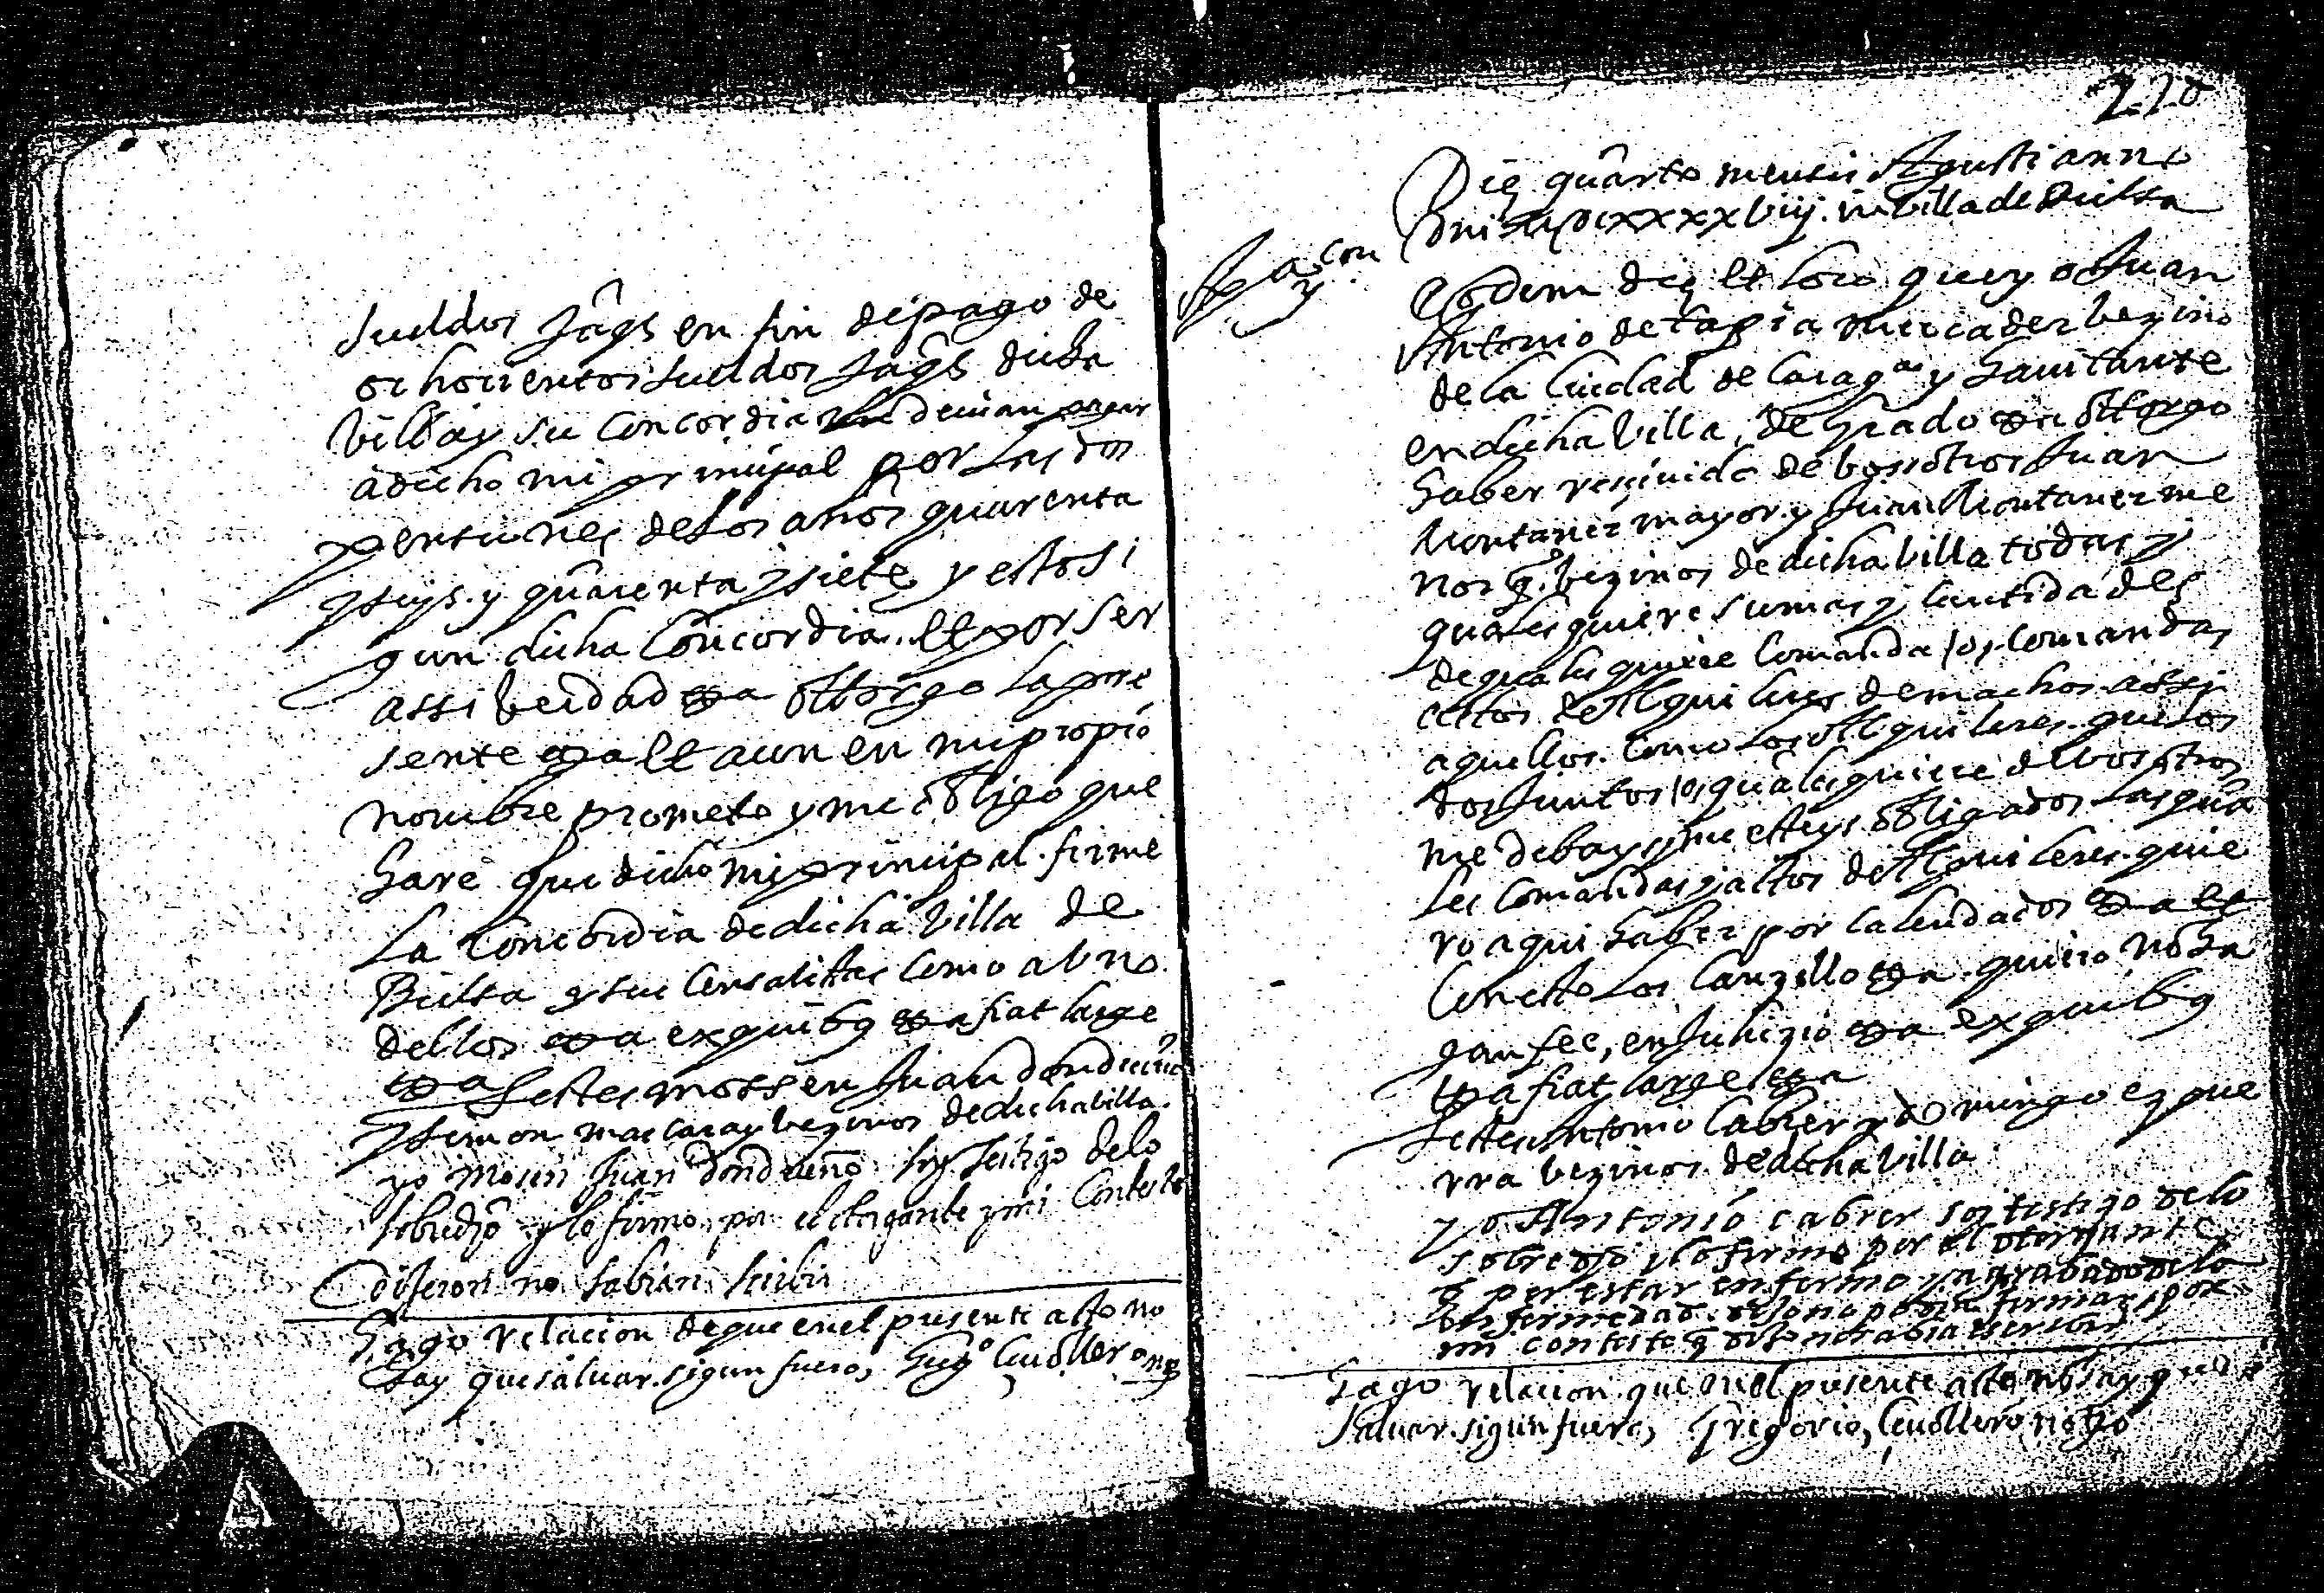 sueldos Jaqs en fin de pago de
ochocientos sueldos Jaqs dicha
Villa y su Concordia deuian pagar
a dicho mi principal por las dos
pensiones de los años quarenta
y seys y quarenta y siete y esto si
gun dicha Concordia. Et por ser
assi verdad ottorgo la pre
sente et aun en mi propio
nombre prometo y me obligo que
hare que dicho mi principal firme
La Concordia de dicha Villa de
Bielsa y sus Censalistas como a bno
dellos ex quibus fiat large
Testes mossen Juan dondueño
y simon mascaray vezinos de dicha villa
yo Mosen Juan dondueño soy testigo delo
sobredho y lo firmo por el otorgante y mi Contesto
q dixeron no sabian scribir
Hago relacion de que en el presente acto no
hay que saluar sigun fuero, Gregº Cauallero
220
Die quarto mensis Agusti anno
Dni MDCXXXXVIIj. in Villa de Bielsa
Eodem die et loco que yo Juan
Antonio de tapia mercader vezino
de la Ciudad de Caragça y hauitante
en dicha Villa, de grado ottorgo
haber reciuido de bosotros Juan
Montaner mayor y Juan Montaner me
nor vezinos de dicha villa todas y
qualesquiere sumas y cantidades
de qualesquiere Comanda /o, Comandas
actos de Alquileres de machos assi
aquellos como los Alquileres que los
dos Juntos /o, qualesquiere de bosotros
me debays y me esteys obligados las qua
les Comandas y actos de Alquileres quie
ro aqui haber por calendados et
Con esto los Canzello quiero no ha
gan fee, en Juhizio ex quibus
fiat large
Testes Antonio Cabrer y domingo ezque
rra vezinos de dicha villa
yo Antonio cabrer soi testigo de lo
sobre dho y lo firmo por el otorgante
q por estar enfermo y agrabado de la
enfermedad dijo no podia firmar y por
mi contesto q dijo no sabia escribir
Hago relacion que en el presente acto no hay que
saluar sigun fuero, Gregorio, Cauallero notº